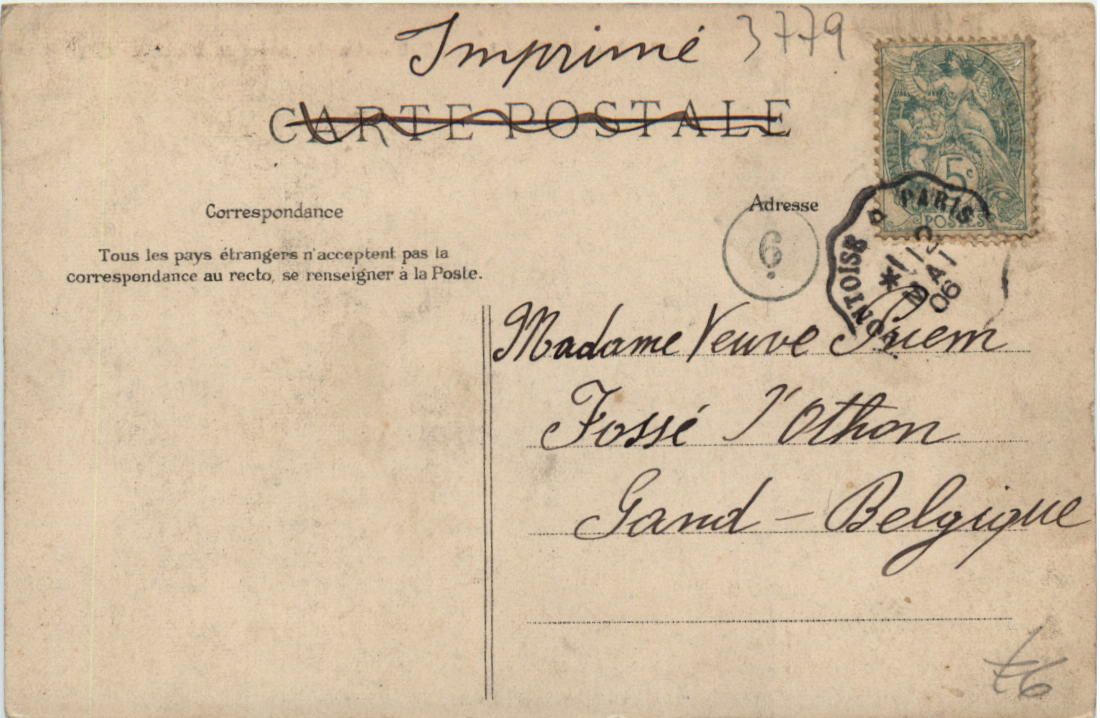 Imprimé 3779
CARTE POSTALE
5c
POSTES
PARIS
MAI
06
Correspondance
Adresse
6
Tous les pays étrangers n'acceptent pas la
correspondance au recto, se renseigner à la Poste.
Madame Veuve
Fossé l'Othon
Gand - Belgique